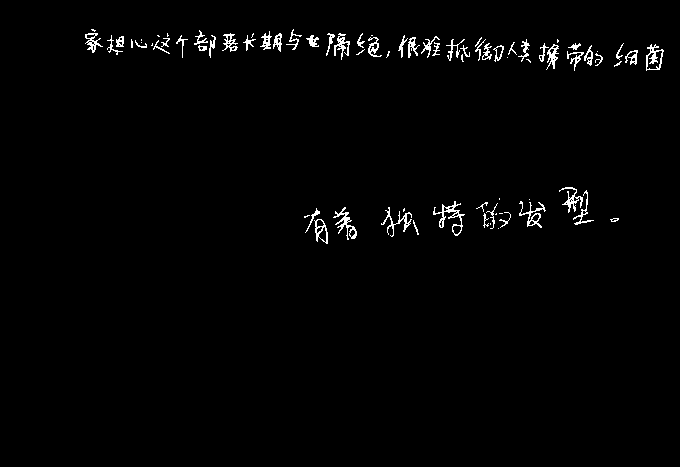 家担心这个部落长期与世隔绝,很难抵御人类携带的细菌
有着独特的发型。